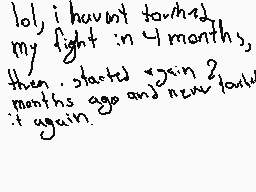 lol, i havent touched
my fight in 4 months,
then. started again 2
months ago and never touched
it again.